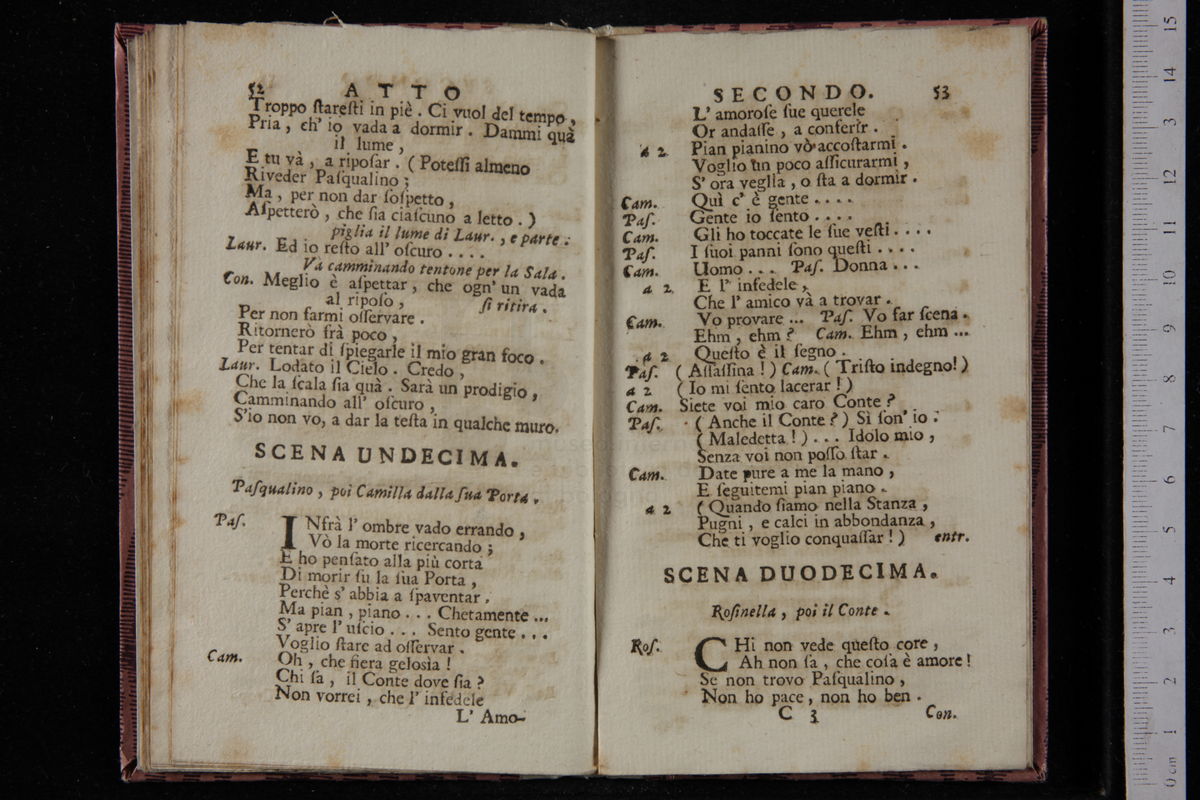 52 ATTO
Troppo ſtareſti in piè . Ci vuol del tempo ,
Pria , ch' io vada a dormir . Dammi quà
il lume ,
E tu và , a ripoſar . ( Poteſſi almeno
Riveder Paſqualino ;
Ma , per non dar ſoſpetto ,
Aſpetterò , che ſia ciaſcuno a letto . )
piglia il lume di Laur. , e parte .
Laur. Ed io reſto all' oſcuro . . . .
Và camminando tentone per la Sala .
Con. Meglio è aſpettar , che ogn' un vada
al ripoſo , ſi ritira .
Per non farmi oſſervare .
Ritornerò frà poco ,
Per tentar di ſpiegarle il mio gran foco .
Laur. Lodato il Cielo . Credo ,
Che la ſcala ſia quà . Sarà un prodigio ,
Camminando all' oſcuro ,
S'io non vo, a dar la teſta in qualche muro.
SCENA UNDECIMA.
Paſqualino , poi Camilla dalla ſua Porta .
Paſ. INfrà l' ombre vado errando ,
Vò la morte ricercando ;
E ho penſato alla più corta
Di morir ſu la ſua Porta ,
Perchè s' abbia a ſpaventar .
Ma pian , piano . . . Chetamente ...
S' apre l' uſcio . . . Sento gente . . .
Voglio ſtare ad oſſervar .
Cam. Oh , che fiera geloſia !
Chi ſa , il Conte dove ſia ?
Non vorrei , che l' infedele
L' Amo-
SECONDO. 53
L' amoroſe ſue querele
Or andaſſe , a conferir .
a 2 Pian pianino vò accoſtarmi .
Voglio un poco aſſicurarmi ,
S' ora veglia , o ſta a dormir .
Cam. Quì c' è gente . . . .
Paſ. Gente io ſento . . . .
Cam. Gli ho toccate le ſue veſti . . . .
Paſ. I ſuoi panni ſono queſti . . . .
Cam. Uomo . . . Paſ. Donna . . .
a 2 E l' infedele ,
Che l' amico và a trovar .
Cam. Vo provare ... Paſ. Vo far ſcena .
Ehm , ehm ? Cam. Ehm , ehm ...
a 2 Queſto è il ſegno .
Paſ. ( Aſſaſſina ! ) Cam. ( Triſto indegno! )
a 2 ( Io mi ſento lacerar ! )
Cam. Siete voi mio caro Conte ?
Paſ. ( Anche il Conte ? ) Sì ſon' io .
( Maledetta ! ) . . . Idolo mio ,
Senza voi non poſſo ſtar .
Cam. Date pure a me la mano ,
E ſeguitemi pian piano .
a 2 ( Quando ſiamo nella Stanza ,
Pugni , e calci in abbondanza ,
Che ti voglio conquaſſar ! ) entr.
SCENA DUODECIMA.
Roſinella , poi il Conte .
Roſ. CHi non vede queſto core ,
Ah non ſa , che coſa è amore !
Se non trovo Paſqualino ,
Non ho pace , non ho ben .
C 3 Con.
0 cm 1 2 3 4 5 6 7 8 9 10 11 12 3 14 15